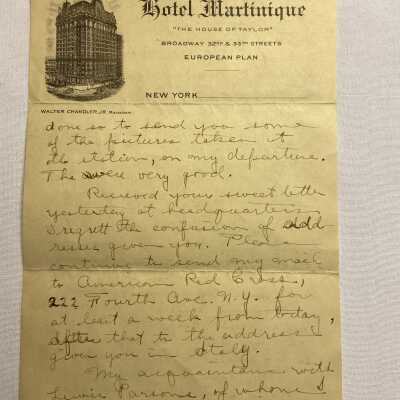 Hotel Martinique
"THE HOUSE OF TAYLOR"
BROADWAY 32ND & 33RD STREETS
EUROPEAN PLAN
NEW YORK
WALTER CHANDLER, JR. MANAGER
done so to send you some
of the pictures taken at
the station, on my departure.
The were very good.
Received your sweet letter
yesterday at headquarters
I regrett the confusion of add
resses given you. Please
continue to send my mail
to American Red Cross,
222 Fourth Ave. N.Y. for
at least a week from today,
after that to the address
given you in Italy.
My acquaintance with
Lewis Parsons, of whome I